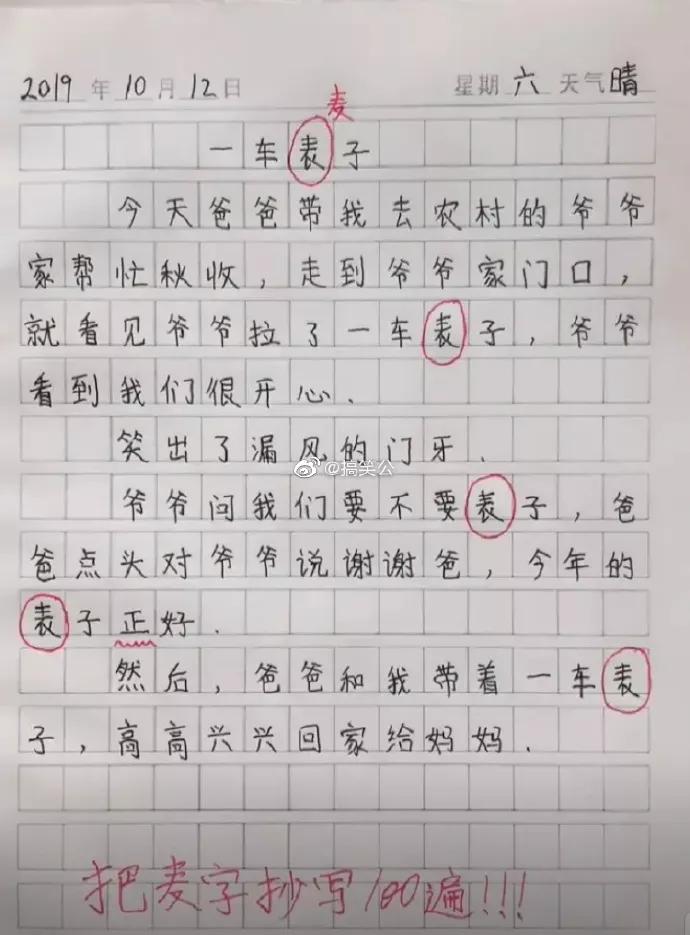 2019年10月12日 星期六 天气晴
麦
一车表子
今天爸爸带我去农村的爷爷
家帮忙秋收，走到爷爷家门口，
就看见爷爷拉了一车表子，爷爷
看到我们很开心.
笑出了漏风的门牙.
@搞笑公
爷爷问我们要不要表子，爸
爸点头对爷爷说谢谢爸，今年的
表子正好.
然后，爸爸和我带着一车表
子，高高兴兴回家给妈妈.
把麦字抄写100遍!!!